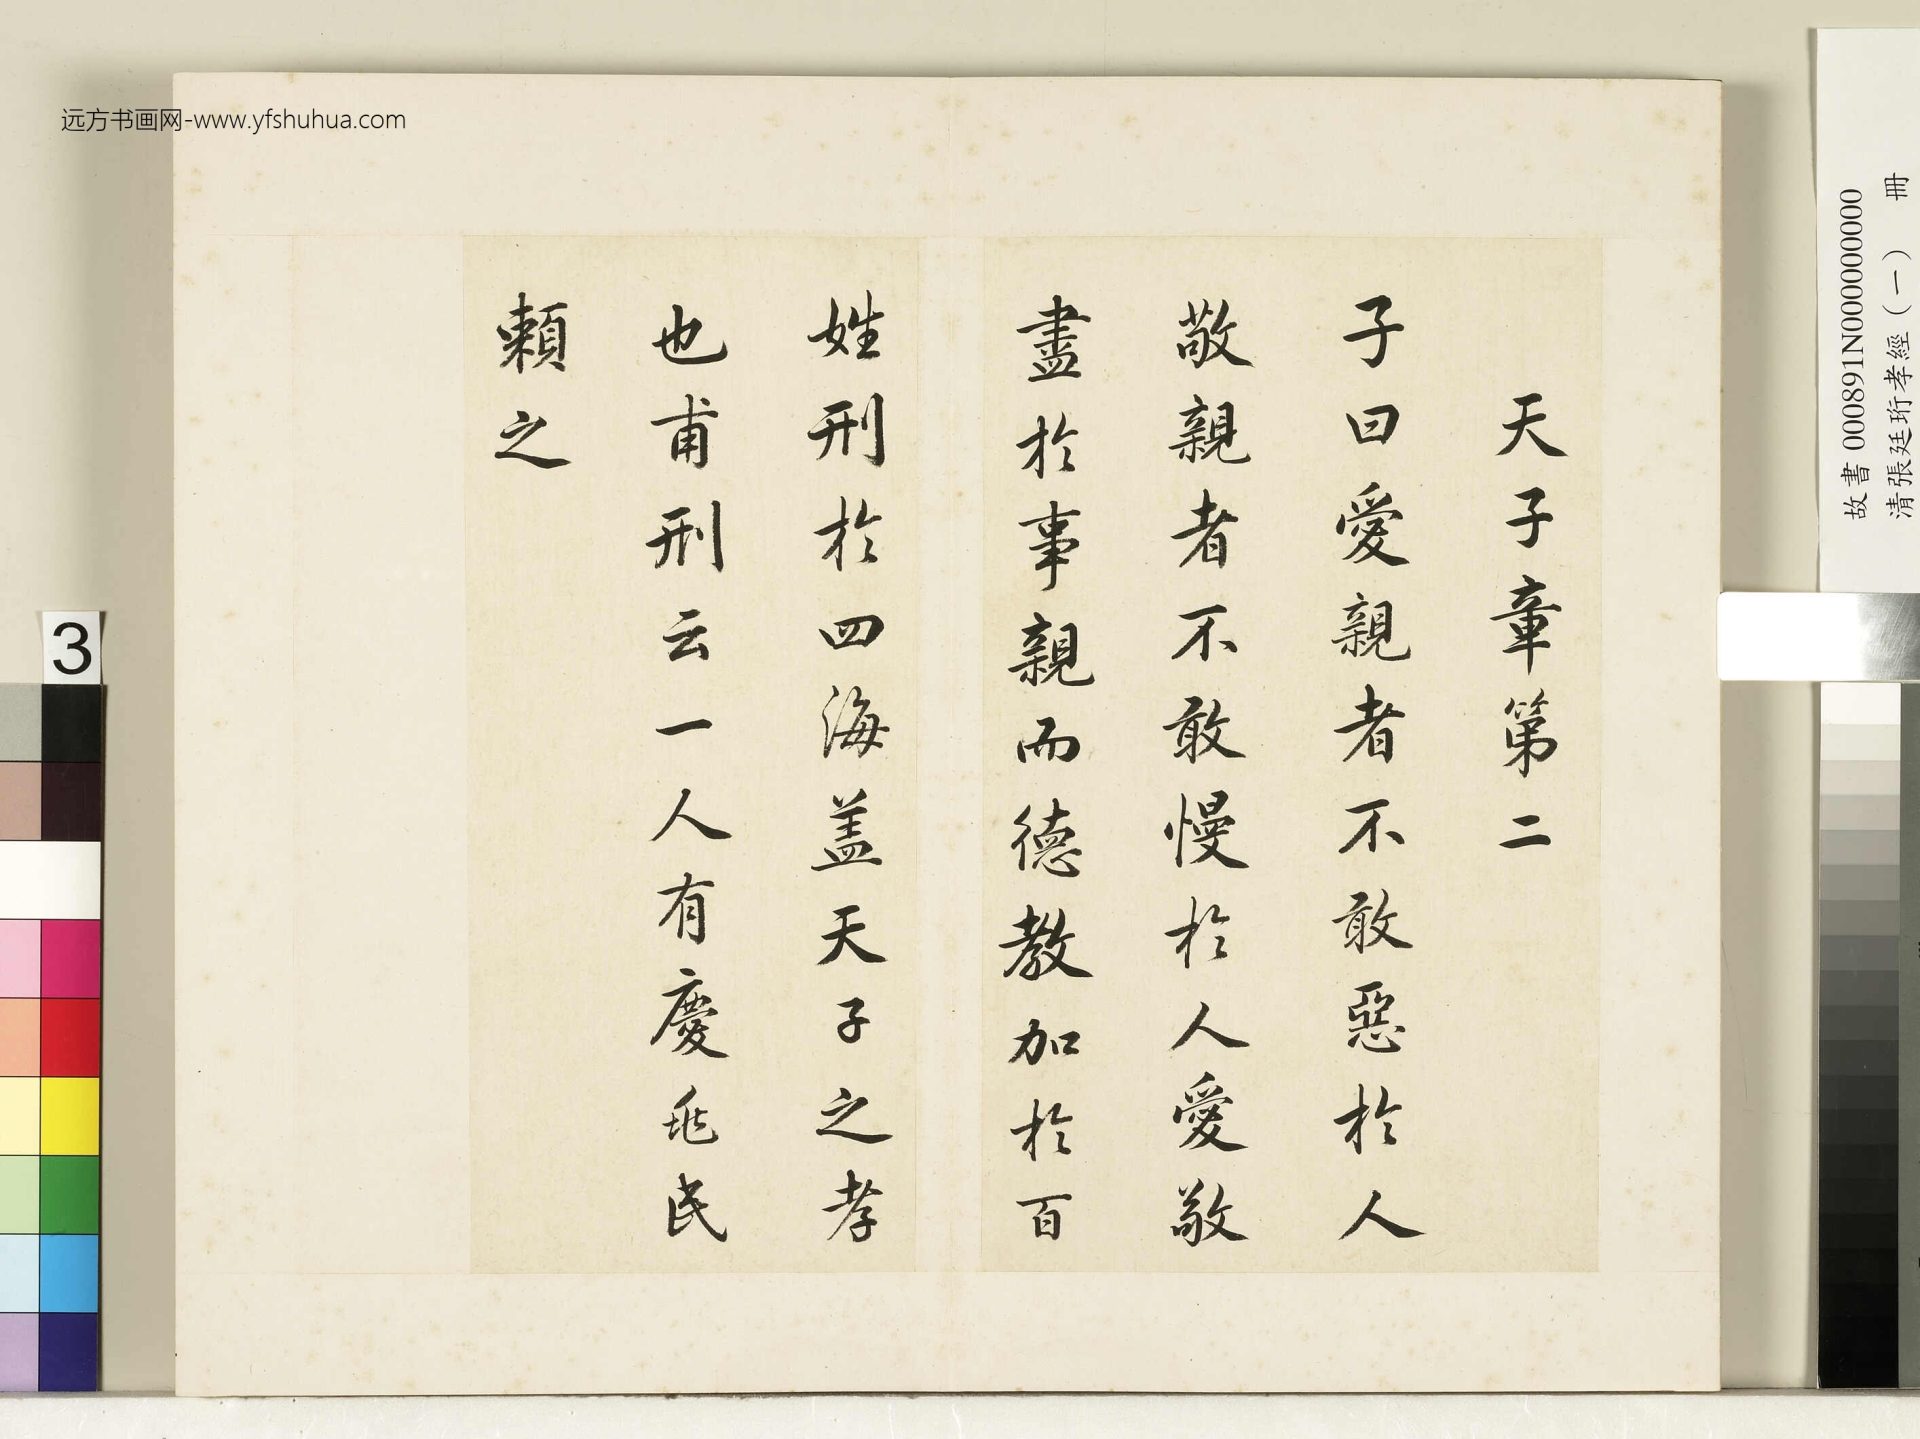 天子章第二
子曰愛親者不敢惡於人
敬親者不敢慢於人愛敬
盡於事親而德教加於百
姓刑於四海盖天子之孝
也甫刑云一人有慶兆民
賴之
远方书画网-www.yfshuhua.com
故書 000891N000000000
清張廷珩孝經(一) 冊
3